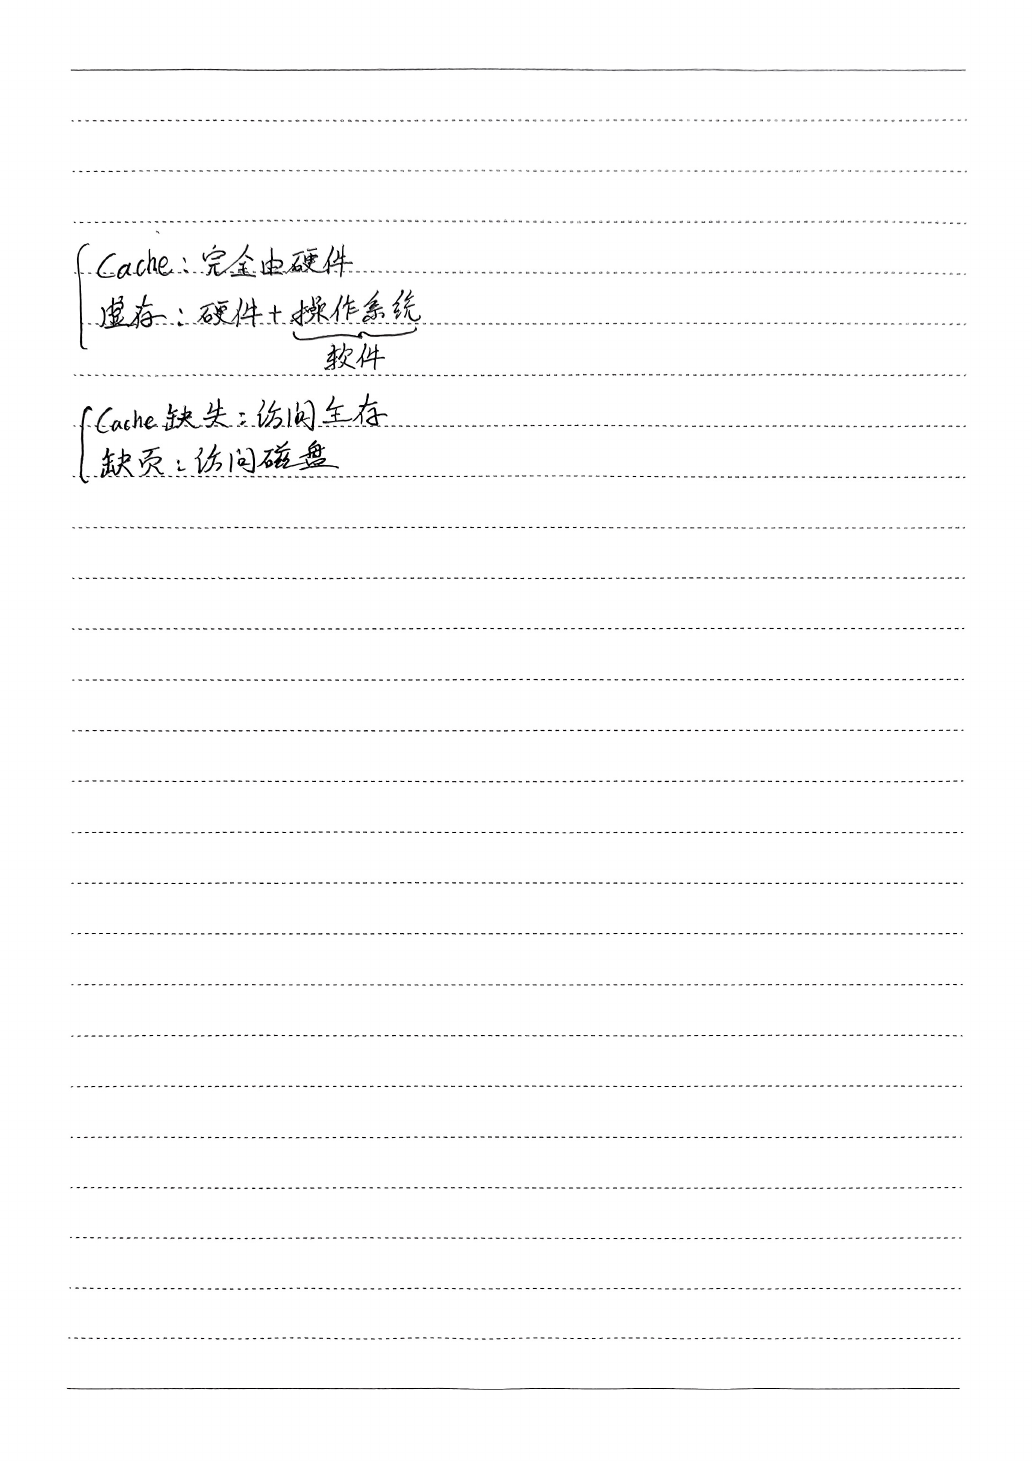 Cache：完全由硬件
虚存：硬件+操作系统
软件
Cache缺失：访问主存
缺页：访问磁盘